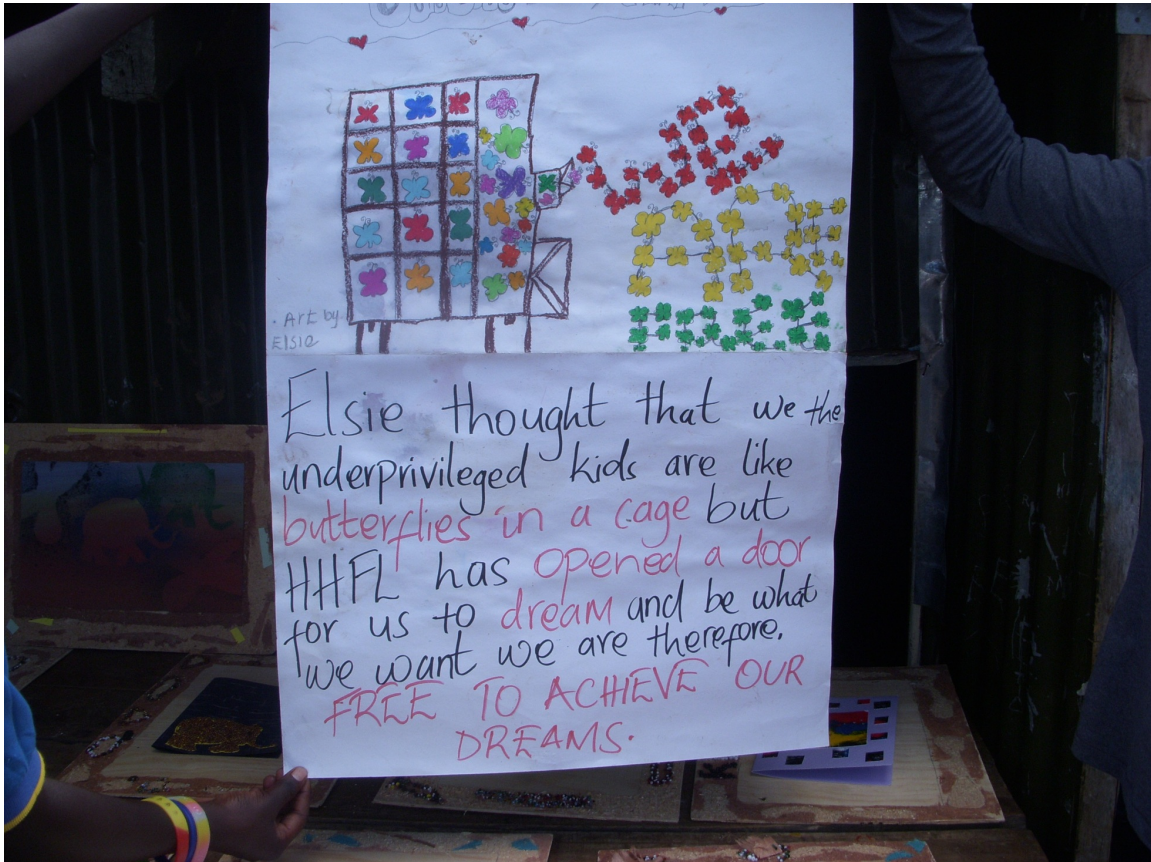 WE
ARE
FREE
. Art by
Elsie
Elsie thought that we the
underprivileged kids are like
butterflies in a cage but
HHFL has opened a door
for us to dream and be what
we want we are therefore.
FREE TO ACHIEVE OUR
DREAMS.